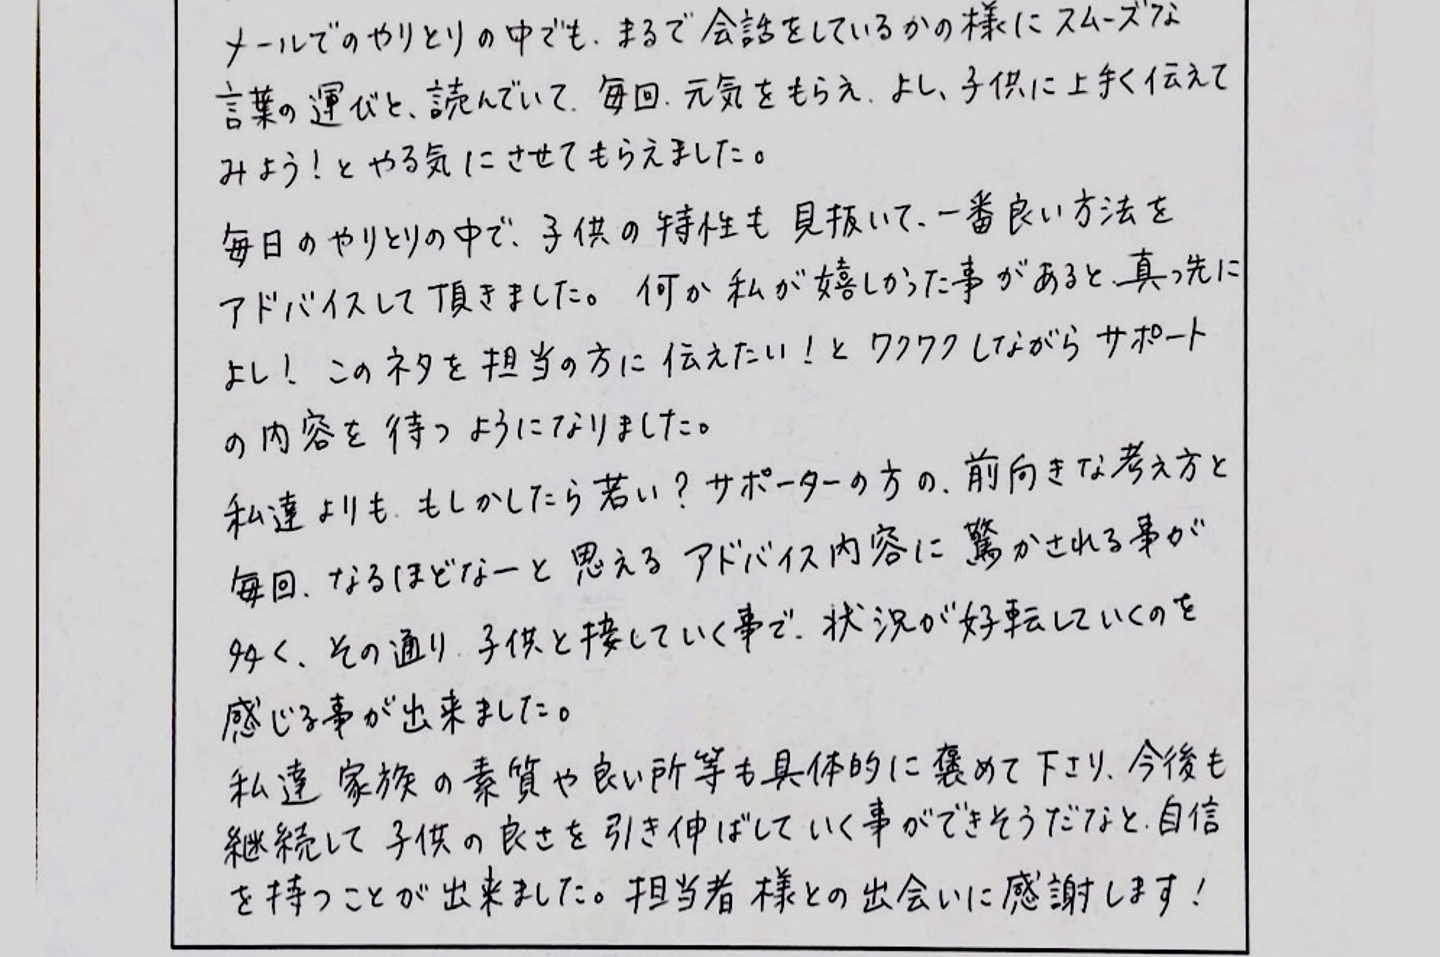 メールでのやりとりの中でも、まるで会話をしているかの様にスムーズな
言葉の運びと、読んでいて、毎回、元気をもらえ、よし、子供に上手く伝えて
みよう！とやる気にさせてもらえました。
毎日のやりとりの中で、子供の特性も見抜いて、一番良い方法を
アドバイスして頂きました。何か私が嬉しかった事があると、真っ先に
よし！このネタを担当の方に伝えたい！とワクワクしながらサポート
の内容を待つようになりました。
私達よりも、もしかしたら若い？サポーターの方の、前向きな考え方と
毎回、なるほどなーと思えるアドバイス内容に驚かされる事が
多く、その通り、子供と接していく事で、状況が好転していくのを
感じる事が出来ました。
私達家族の素質や良い所等も具体的に褒めて下さり、今後も
継続して子供の良さを引き伸ばしていく事ができそうだなと、自信
を持つことが出来ました。担当者様との出会いに感謝します！